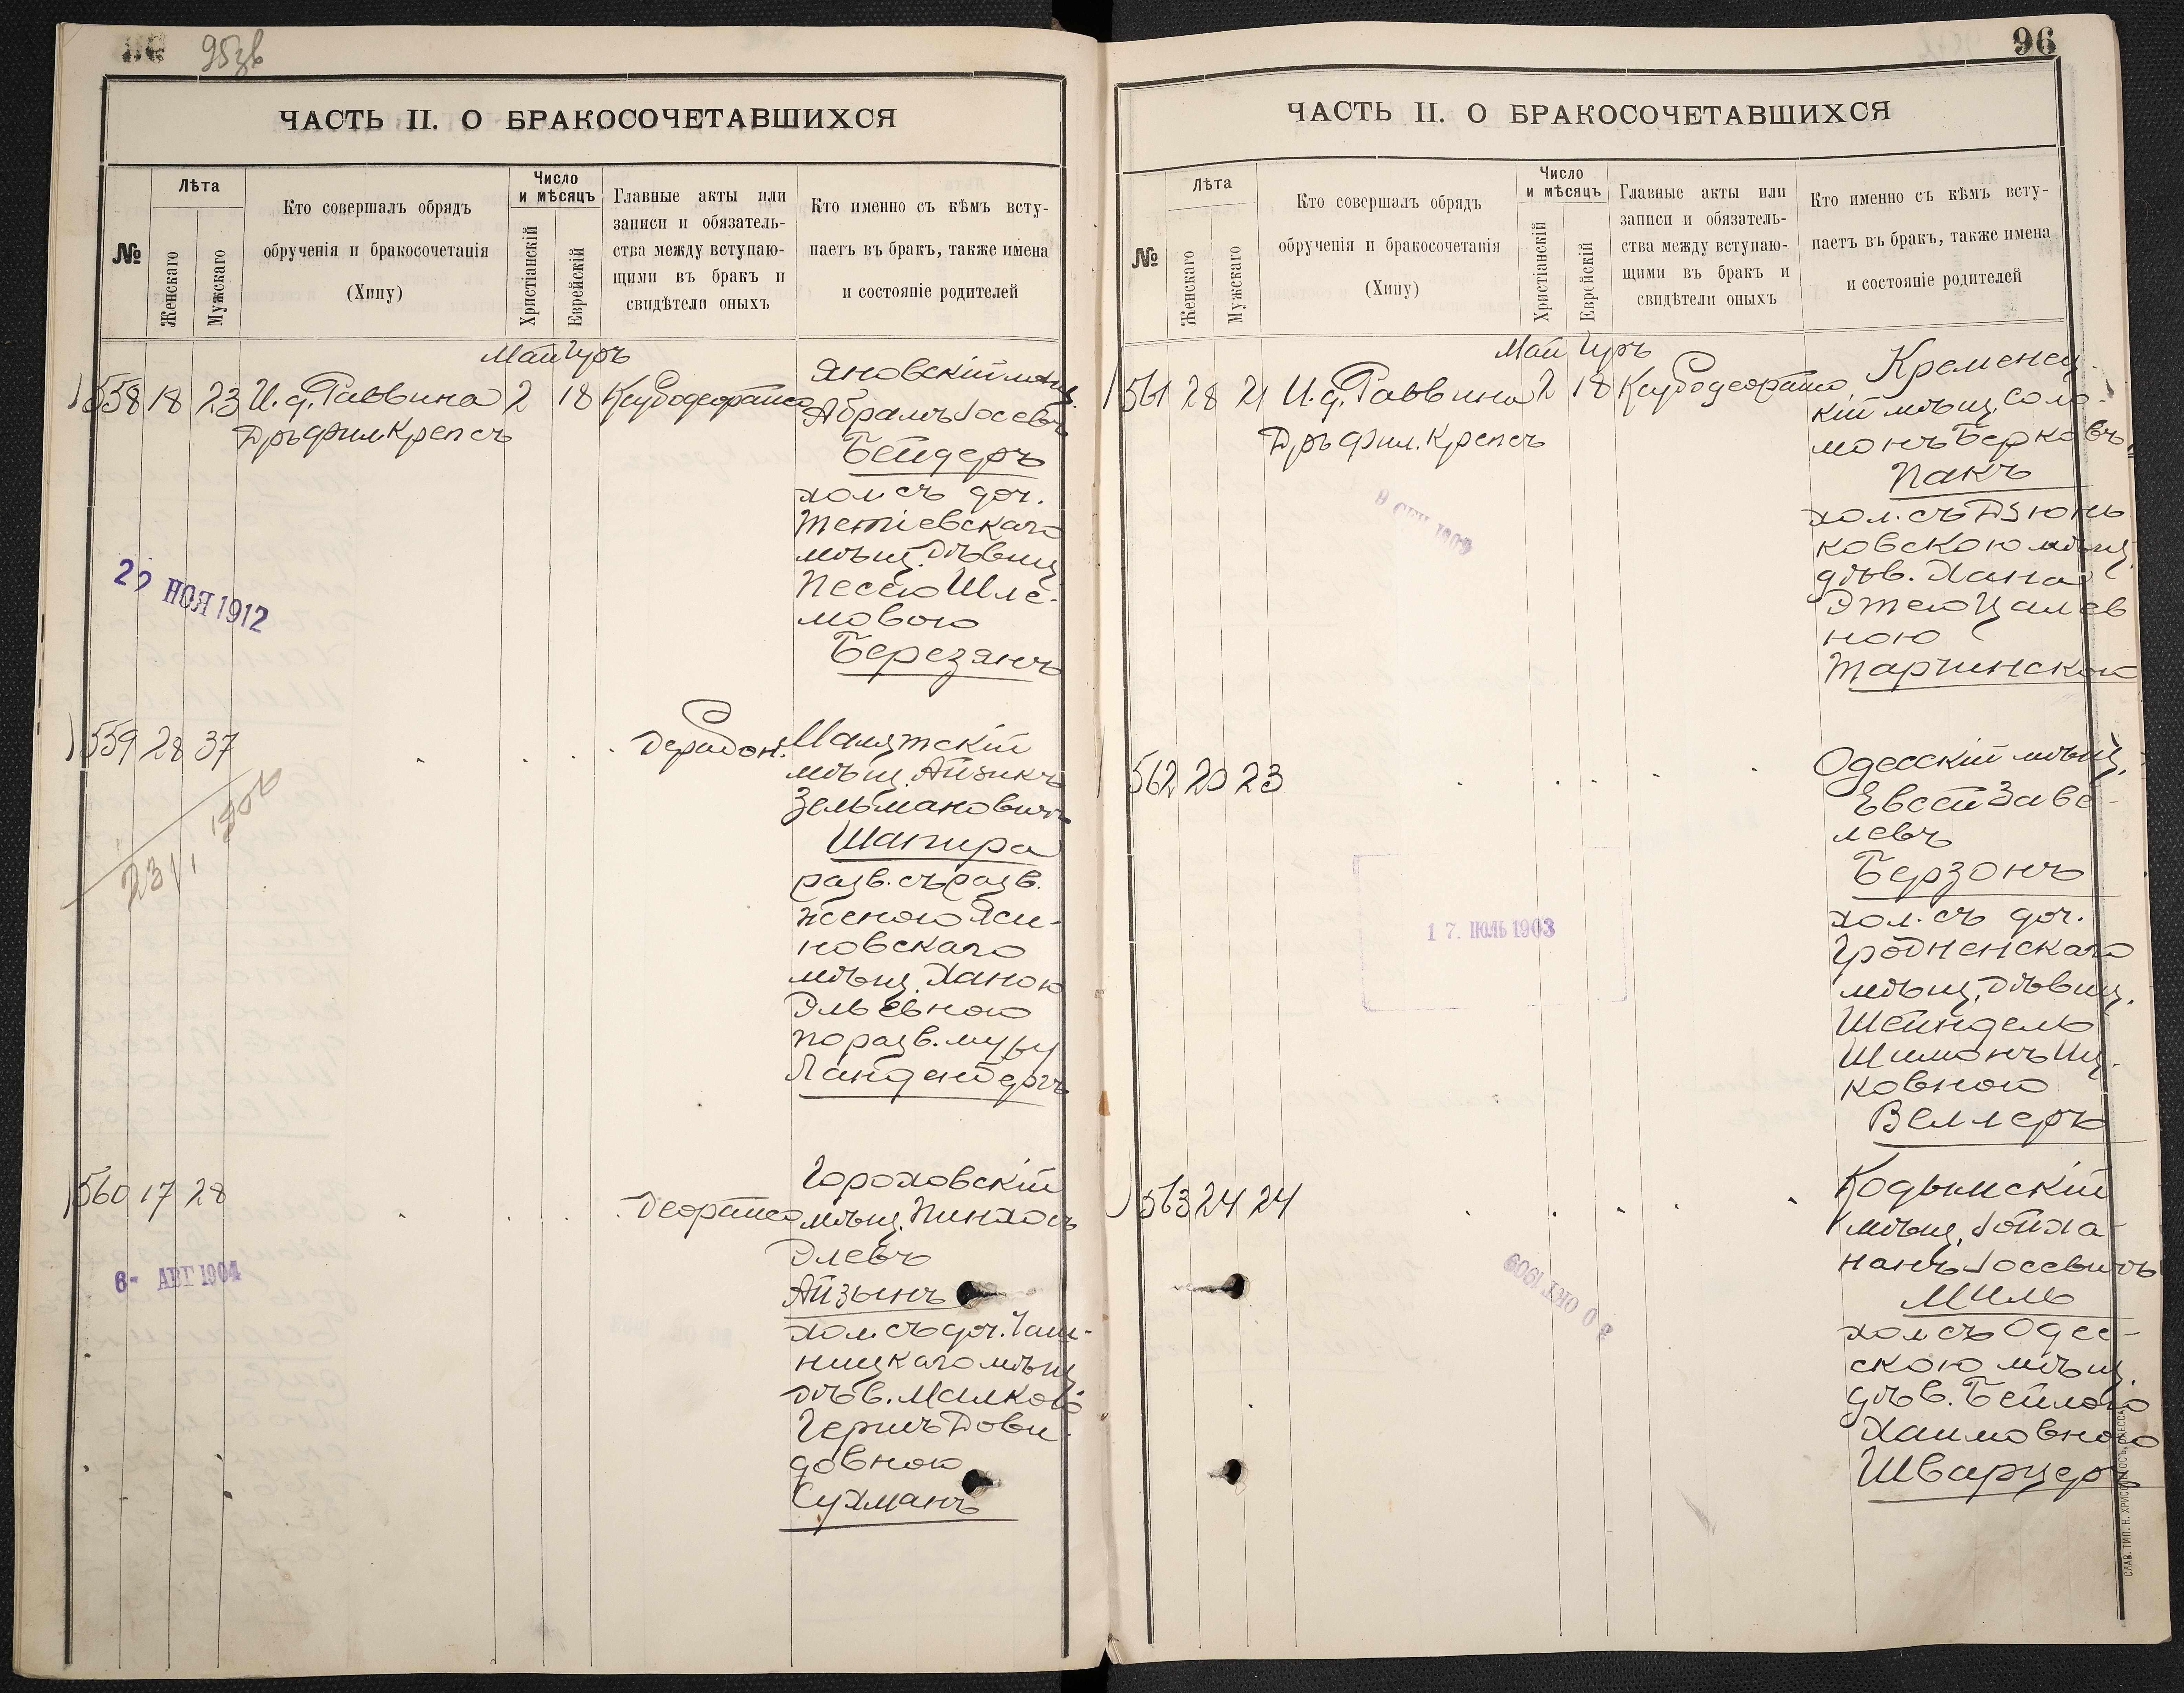 95зв
ЧАСТЬ II. О БРАКОСОЧЕТАВШИХСЯ
№
Лѣта
Женскаго
Мужскаго
Кто совершалъ обрядъ
обрученія и бракосочетанія
(Хипу)
Число
и мѣсяцъ
Христіанскій
Еврейскій
Главные акты или
записи и обязатель-
ства между вступаю-
щими въ бракъ и
свидѣтели оныхъ
Кто именно съ кѣмъ всту-
паетъ въ бракъ, также имена
и состояніе родителей
Май Iуръ
558 18 23 И. д. Раввина 2 18
Дръ Фил Крепсъ
Яновскій мѣщ.
Абрамъ Іосевъ
Бейдеръ
хол. съ доч.
Тетіевскаго
мѣщ. дѣвиц
Песею Шле-
мовою
Березянъ
22 НОЯ 1912
559 28 37
Мѣщ. Айзикъ
Зельмановичъ
Шапира
разв. съ разв.
женою Яси-
новскаго
мѣщ. Ханою
Эльевною
по разв. мужу
560 17 28
Гороховскій
мѣщ. Пинхосъ
Элевъ
Айзынъ
хол. съ доч. Гаш-
ницкаго мѣщ
дѣв. Малкою
Гершъ Дови-
довною
Сухманъ
6- АВГ 1904
96
ЧАСТЬ II. О БРАКОСОЧЕТАВШИХСЯ
№
Лѣта
Женскаго
Мужскаго
Кто совершалъ обрядъ
обрученія и бракосочетанія
(Хипу)
Число
и мѣсяцъ
Христіанскій
Еврейскій
Главные акты или
записи и обязатель-
ства между вступаю-
щими въ бракъ и
свидѣтели оныхъ
Кто именно съ кѣмъ всту-
паетъ въ бракъ, также имена
и состояніе родителей
Май Iуръ
561 28 21 И. д. Раввина 2 18
Дръ Фил. Крепсъ
Кременец-
кій мѣщ. Соло-
монъ Берковъ
Пакъ
хол. съ Дзюнь
ковскою мѣщ.
дѣв. Хана
Этею Цалев
ною
Таргинскою
9 СЕН 1909
562 20 23
Одесскій мѣщ.
Евсей Заве-
левъ
Берзонъ
хол. съ доч.
Гродненскаго
мѣщ. дѣвиц.
Шейндель
Шимонъ Иц-
ковною
Веллеръ
17. ИЮЛЬ 1903
563 24 24
Кодымскій
мѣщ. Іойха-
нанъ Іосевичъ
Миль
хол съ Одес-
скою мѣщ.
дѣв. Бейлою
Хаимовною
Шварцеръ
ОКТ 1909
СЛАВ. ТИП. Н. ХРИСОГЕЛОСЪ, ОДЕССА